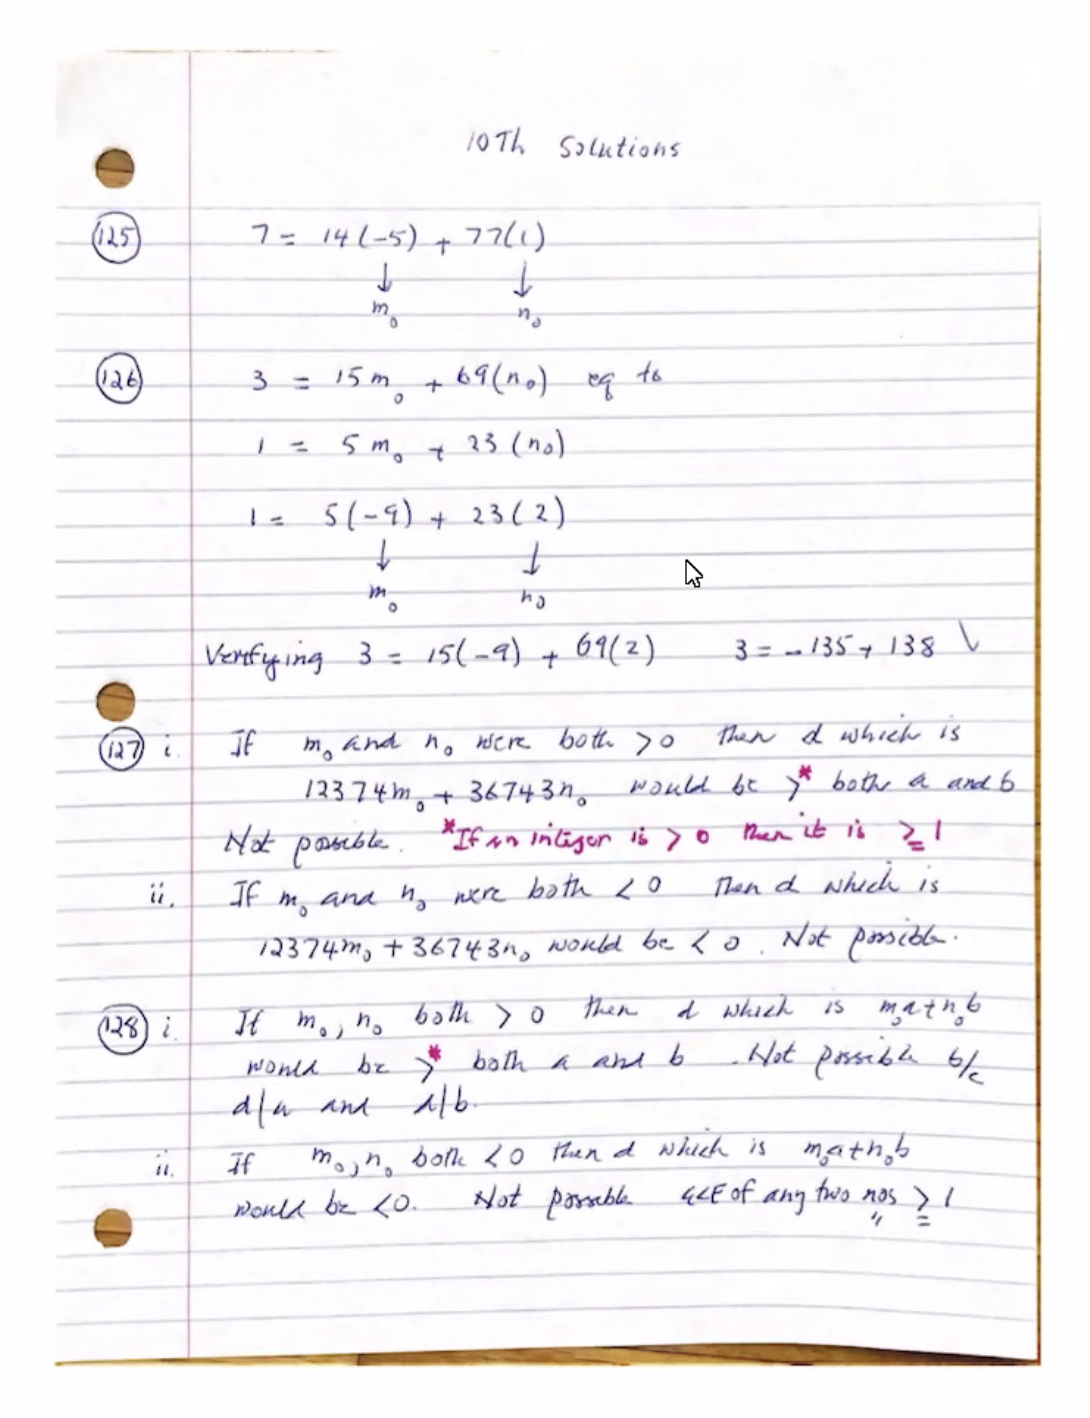 10Th Solutions
125 7 = 14(-5) + 77(1)
↓ ↓
m₀ n₀
126 3 = 15m₀ + 69(n₀) eq to
1 = 5m₀ + 23(n₀)
1 = 5(-9) + 23(2)
↓ ↓
m₀ n₀
Verifying 3 = 15(-9) + 69(2) 3 = -135 + 138
127 i. If m₀ and n₀ were both >0 then d which is
12374m₀ + 36743n₀ would be >* both a and b
Not possible. *If an integer is > 0 then it is ≥ 1
ii. If m₀ and n₀ were both <0 Then d which is
12374m₀ + 36743n₀ would be < 0. Not possible.
128 i. If m₀, n₀ both > 0 then d which is m₀a+n₀b
would be >* both a and b. Not possible b/c
d/a and d/b.
ii. If m₀, n₀ both <0 then d which is m₀a+n₀b
would be <0. Not possible of any two nos ≥ 1